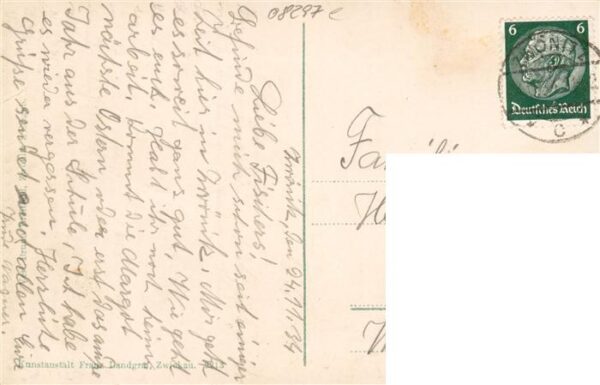 08297 c
Zwönitz, den 24.11.34
Liebe Fischers!
Befinde mich schon seit einiger
Zeit hier in Zwönitz. Mir geht
es soweit ganz gut. Wie geht
es euch. Habt ihr noch keine
Arbeit. Kommt die Margot
nächste Ostern oder erst das andre
Jahr aus der Schule. Ich habe
es wieder vergessen. Herzliche
Grüße sendet euch allen Eure
Wagner.
Kunstanstalt Franz Landgraf, Zwickau.
6 6
Deutsches Reich
ZWÖNITZ
c
Fa